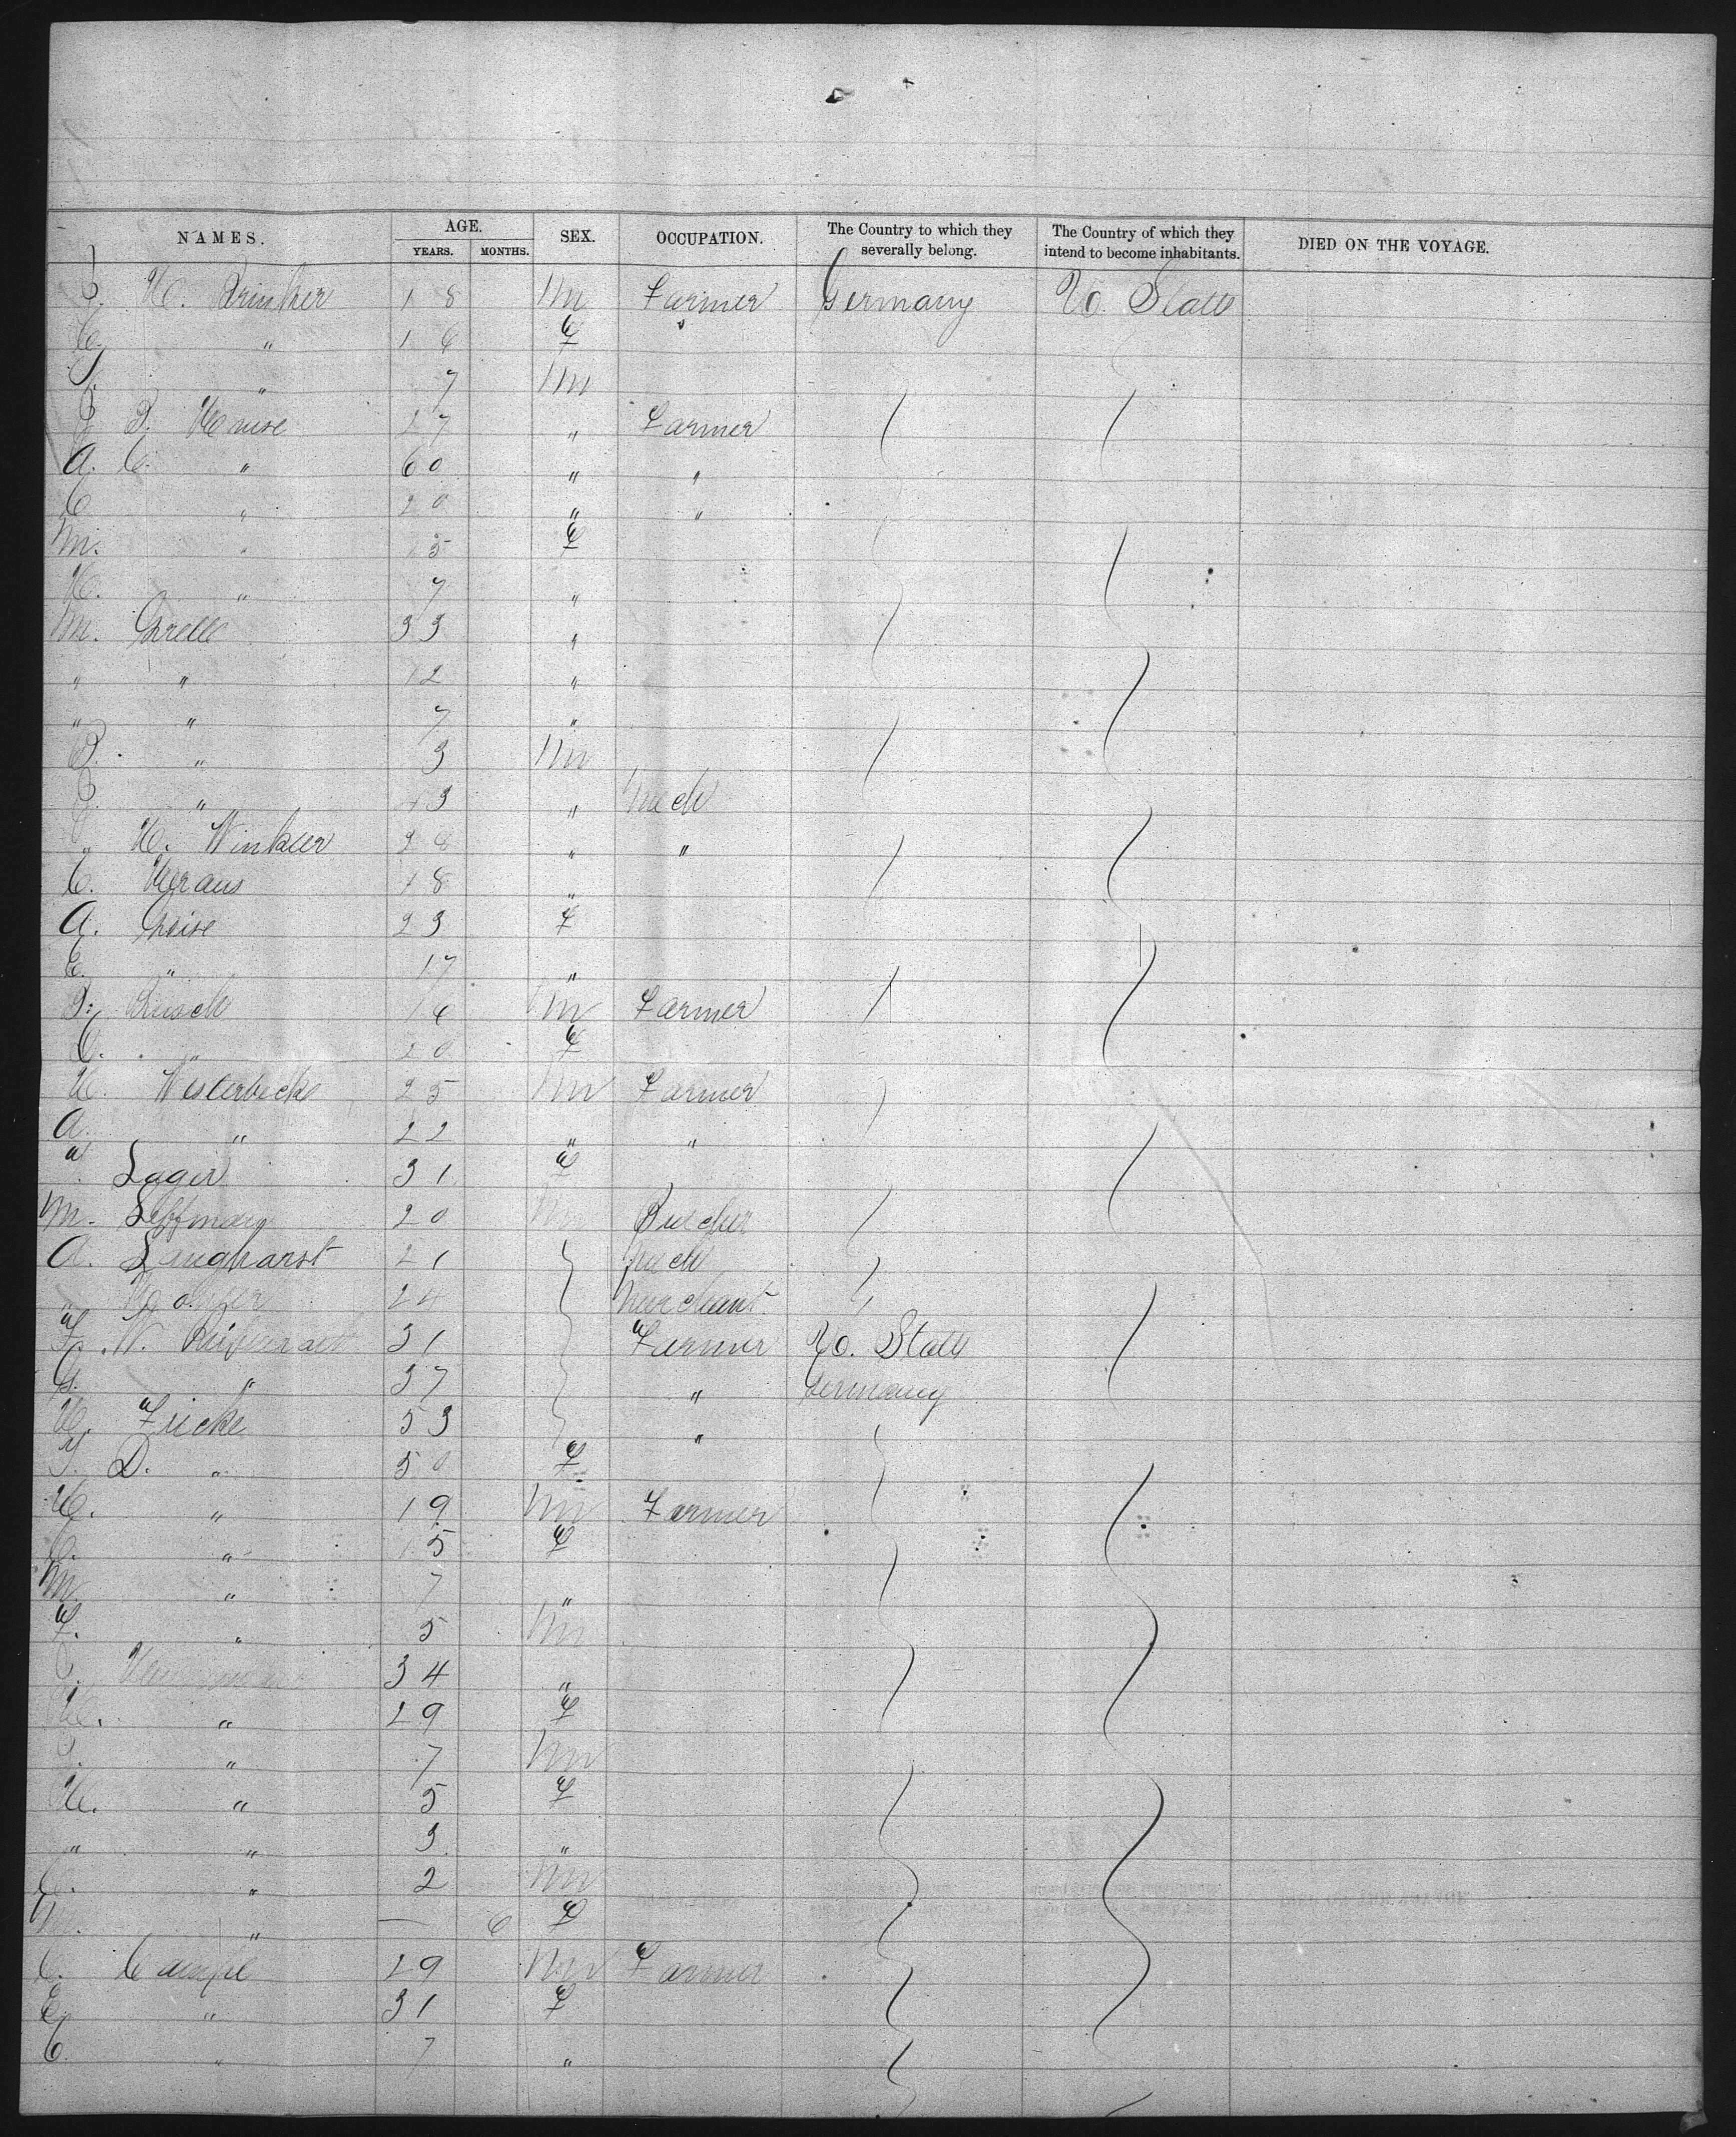 NAMES. AGE. SEX. OCCUPATION. The Country to which they severally belong. The Country of which they intend to become inhabitants. DIED ON THE VOYAGE.
YEARS. MONTHS.
H. Brinker 18 m Farmer Germany U. States
C. " 16 F
" 7 m
J. B. 17 " Farmer
A. C. " 60 " "
C " 20 " "
M. " 15 F
H. " 7 "
M. Grelle 33 "
" " 12 "
" " 7 "
B. " 3 m
J. " 43 " Mech
" H. Winkler 28 " "
C. Kraus 18 "
A. Gheise 23 F
E. " 17 "
B. Busch 16 m Farmer
C. " 20 F
H. Westerbecke 25 m Farmer
A. " 22 " "
" Lager 31 F
M. Leffmann 20 m Butcher
A. Langharst 21 Mech
" 24 Merchant
F. W. 31 Farmer U. States
G. " 37 " Germany
H. Fricke 53 "
F. D. " 50 F
H. " 19 m Farmer
C. " 15 F
M. " 7 "
F. " 5 m
34 "
H. " 29 F
" 7 m
H. " 5 F
" " 3 "
C. " 2 m
M. " — 6 F
C. Campe 29 m Farmer
E. " 31 F
C. " 7 "